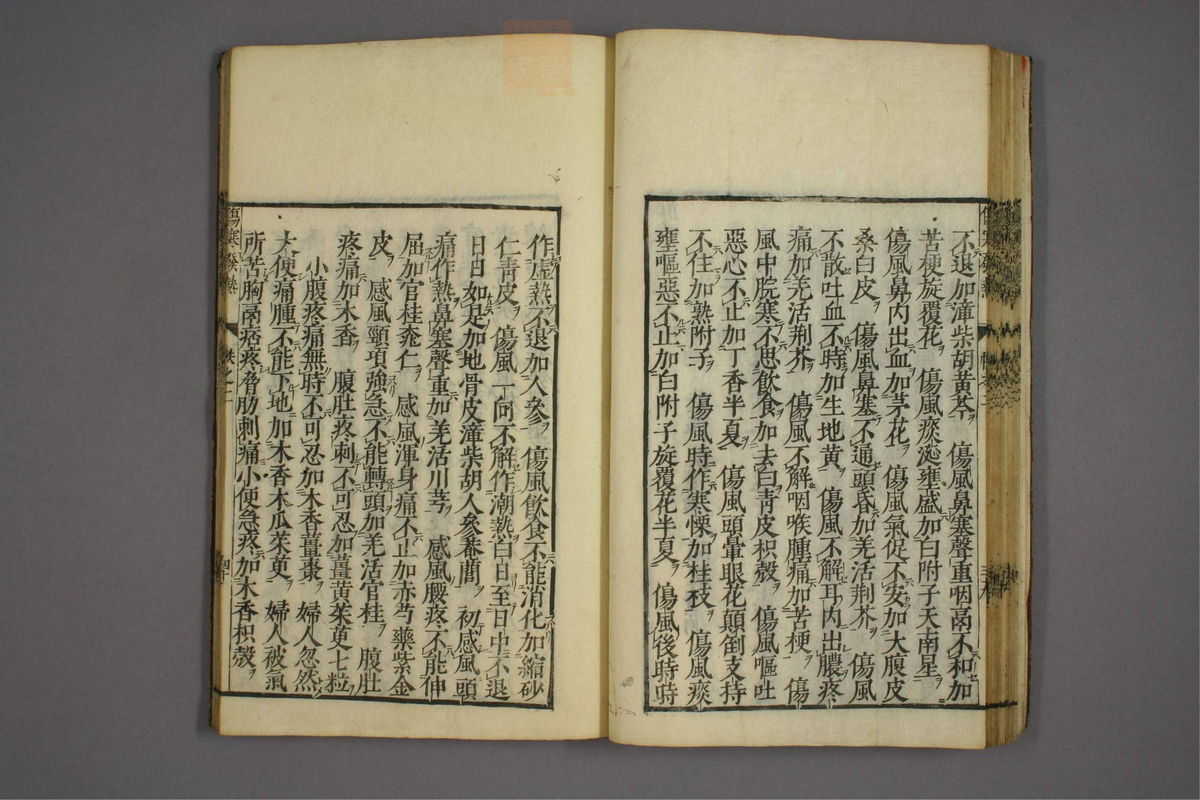 不退加潼柴胡黄芩　傷風鼻塞聲重咽鬲不和加
苦梗旋覆花　傷風痰涎壅盛加白附子天南星
傷風鼻内出血加茅花　傷風氣促不安加大腹皮
桑白皮　傷風鼻塞不通頭昏加羌活荆芥　傷風
不散吐血不時加生地黄　傷風不解耳内出膿疼
痛加羌活荆芥　傷風不解咽喉腫痛加苦梗　傷
風中脘寒不思飲食加去白青皮枳殻　傷風嘔吐
惡心不止加丁香半夏　傷風頭暈眼花顛倒支持
不住加熟附子　傷風時作寒慄加桂枝　傷風痰
壅嘔惡不止加白附子旋覆花半夏　傷風後時時
作虚熱不退加人參　傷風飲食不能消化加縮砂
仁青皮　傷風一向不解作潮熱白日至日中不退
日日如是加地骨皮潼柴胡人參菴䕡　初感風頭
痛作熱鼻塞聲重加羌活川芎　感風腰疼不能伸
屈加官桂桃仁　感風渾身痛不止加赤芍藥紫金
皮　感風頸項強急不能轉頭加羌活官桂　腹肚
疼痛加木香　腹肚疼刺不可忍加薑黄茱萸七粒
小腹疼痛無時不可忍加木香薑棗　婦人忽然
大便痛腫不能下地加木香木瓜茱萸　婦人被氣
所苦胸鬲痞疼脅肋刺痛小便急疼加木香枳殻